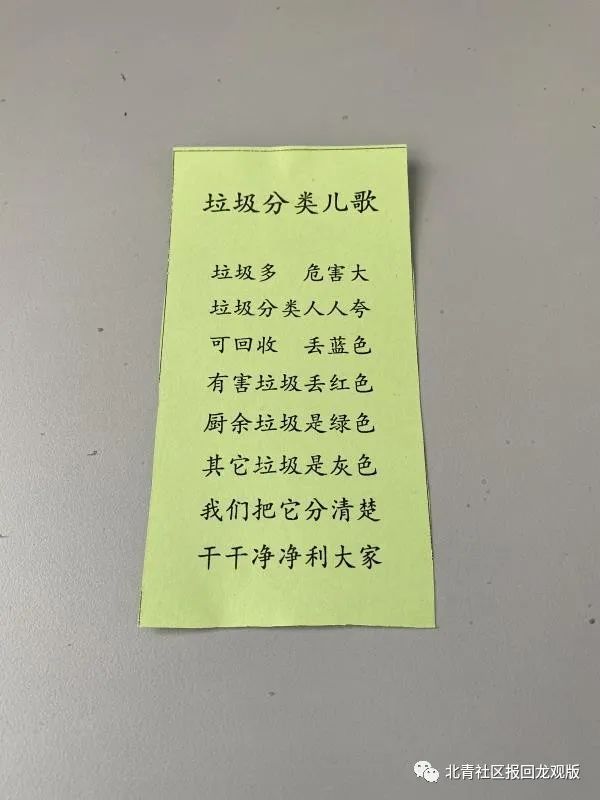 垃圾分类儿歌
垃圾多 危害大
垃圾分类人人夸
可回收 丢蓝色
有害垃圾丢红色
厨余垃圾是绿色
其它垃圾是灰色
我们把它分清楚
干干净净利大家
北青社区报回龙观版